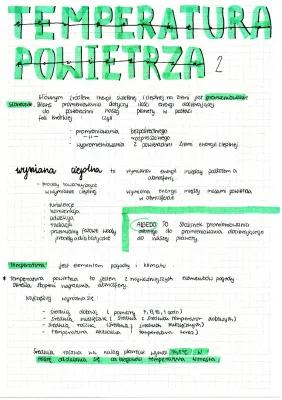 TEMPERATURA
POWIETRZA 2
Głównym źródłem energii świetlnej i cieplnej na Ziemi jest promieniowanie
słoneczne. Bilans promieniowania dotyczy ilość energii docierającej
do powierzchni naszej planety w postaci
fali krótkiej czyli
- promieniowania bezpośredniego
-||- rozproszonego
- wypromieniowania z powierzchni Ziemi energii cieplnej
wymiana cieplna to wymiana energii między podłożem a
atmosferą
- procesy towarzyszące
w wymianie cieplnej
wymiana energii między masami powietrza
w atmosferze
turbulencja
konwekcja
adwekcja
radiacja
przemiany fazowe wody
procesy adiabatyczne
ALBEDO TO stosunek promieniowania
odbitego do promieniowania docierającego
do naszej planety.
Temperatura jest elementem pogody i klimatu
* Temperatura powietrza to jeden z najważniejszych elementów pogody
określa stopień nagrzania atmosfery.
Najczęściej wyróżnia się:
- średnią dobową ( pomiary 7, 13, 19, 1 godz )
- średnią miesięczną ( średnia z średnich temperatur dobowych)
- średnią roczną (średnia ( średnich miesięcznych)
- temperaturę aktualną ( temperatura teraz )
Średnia roczna na naszej planecie wynosi